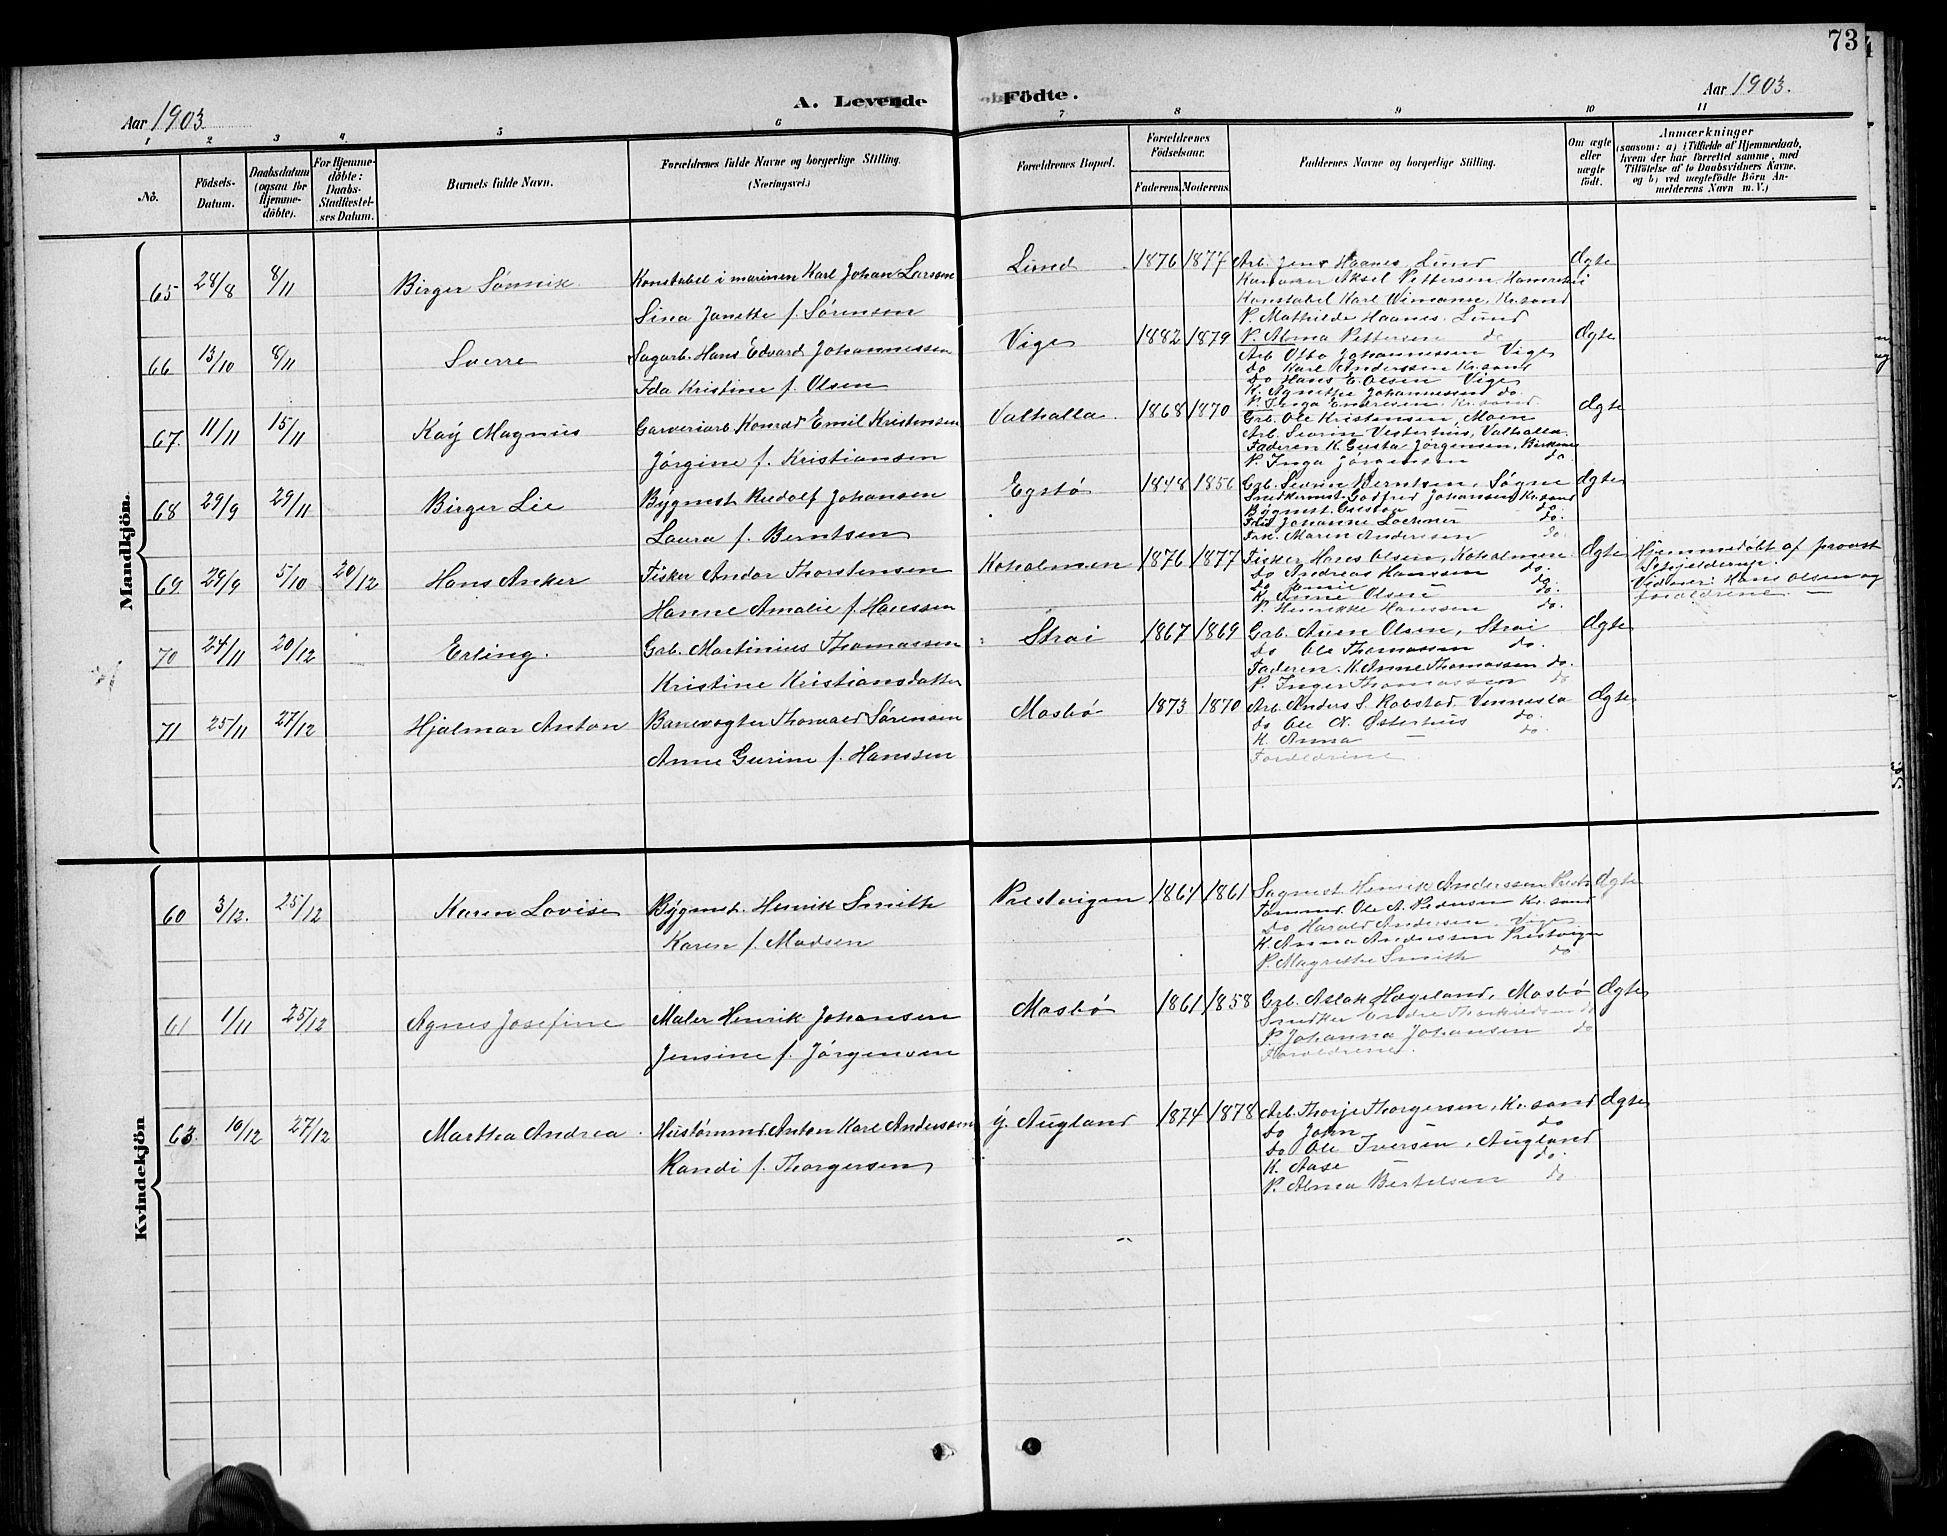 73
Aar 1903.
A. Levende Födte.
Aar 1903.
1 2 3 4 5 6 7 8 9 10 11
No.
Födsels-Datum.
Daabsdatum (ogsaa for Hjemme-döbte).
For Hjemme-döbte: Daabs-Stadfæstel-ses Datum.
Barnets fulde Navn.
Forældrenes fulde Navne og borgerlige Stilling. (Næringsvei.)
Forældrenes Bopæl.
Forældrenes Födselsaar.
Faderens. Moderens.
Faddernes Navne og borgerlige Stilling.
Om ægte eller uægte födt.
Anmærkninger
(saasom: a) i Tilfælde af Hjemmedaab, hvem der har forrettet samme, med Tilföielse af to Daabsvidners Navne. og b) ved uægtefödte Börn An-melderens Navn m. V.)
Mandkjön.
65 28/8 8/11 Birger Sønnik. Konstabel i marinen Karl Johan Larsen
Sina Janette f. Sørensen
Lund 1876 1877 Arb. Jens Haanes, Lund Ægte
Aksel Pettersen
Konstabel Karl Wimann, Kr.sand
P. Mathilde Haanes. Lund
P. Alma Pettersen do
66 13/10 8/11 Sverre Sagarb. Hans Edvard Johannessen
Ida Kristine f. Olsen
Vige 1882 1879 Arb Otto Johannessen Vige Ægte
do Karl Anderssen Kr.sand
Do Hans E. Olsen Vige
K. Agnethe Johannessen do
P. Inga Kr.sand
67. 11/11 15/11 Kay Magnus Garveriarb. Konrad Emil Kristensen
Jørgine f. Kristiansen
Valhalla. 1868 1870 Grb. Ole Kristensen, Moen Ægte
Arb. Severin Vesterhus, Valhalla
Faderen K. Gusta Jørgensen,
P. Inga Jørgensen do
68 29/9 29/11 Birger Lie Bygmest. Rudolf Johansen
Laura f. Berntsen
Egsbø 1848 1856 Grb. Severin Berntsen, Søgne Ægte
Snedkermst. Godfred Johansen Kr.sand
Bygmst. Gustav do.
Johanne Lochner do.
Frk. Maren Andersen do
69 29/9 5/10 20/12 Hans Anker Fisker Andor Thorstensen
Hanne Amalie f. Hanssen
Koholmen 1876 1877 Fisker Hans Olsen, Koholmen Ægte
Do Andreas Hanssen do.
Do do.
K. Anne Olsen do.
P. Henrikke Hanssen do.
Hjemmedøbt af provst
Schjelderup.
Vidner: Hans Olsen og
forældrene. —
70 24/11 20/12 Erling. Grb. Martinius Thomassen
Kristine Kristiansdatter
Strai 1867 1869 Grb. Auen Olsen, Strai Ægte
Do Ole Thomassen do.
Faderen. K. Anne Thomassen do.
P. Inger Thomassen do
71 25/11 27/12 Hjalmar Anton Banevogter Thorvald Sørensen
Anne Gurine f. Hanssen
Mosbø 1873 1870 Arb. Anders S. Robstad, Vennesla Ægte
do Ole N. Østerhus do.
K. Anna — do.
Forældrene.
Kvindekjön
60 3/12. 25/12 Karen Lovise Bygmst. Henrik Smith
Karen f. Madsen
Prestvigen 1864 1861 Sagmest Henrik Anderssen Prestv Ægte
Tømmd. Ole A. Pedersen Kr.sand
Do Harald Andersen. Vige
K. Anna Anderssen Prestvigen
P. Magrethe Smith do
61 1/11 25/12 Agnes Josefine Maler Henrik Johansen
Jensine f. Jørgensen
Mosbø 1861 1858 Grb. Aslak Hægeland, Mosbø Ægte
Snedker do
P. Johanna Johansen do
Forældrene.
63. 10/12 27/12 Marthea Andrea. Hustømmd. Anton Karl Andersen
Randi f. Thorgersen
y. Augland 1874 1878 Arb. Thorje Thorgersen, Kr.sand Ægte
Do John do
Do Ole Iversen, Augland
K. Aase do.
P. Alma Bertelsen do